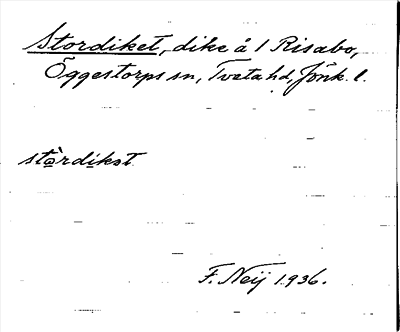 Stordiket, dike å 1 Risabo,
Öggestorps sn, Tveta hd, Jönk. l.
stòrdikət
F. Neij 1936.